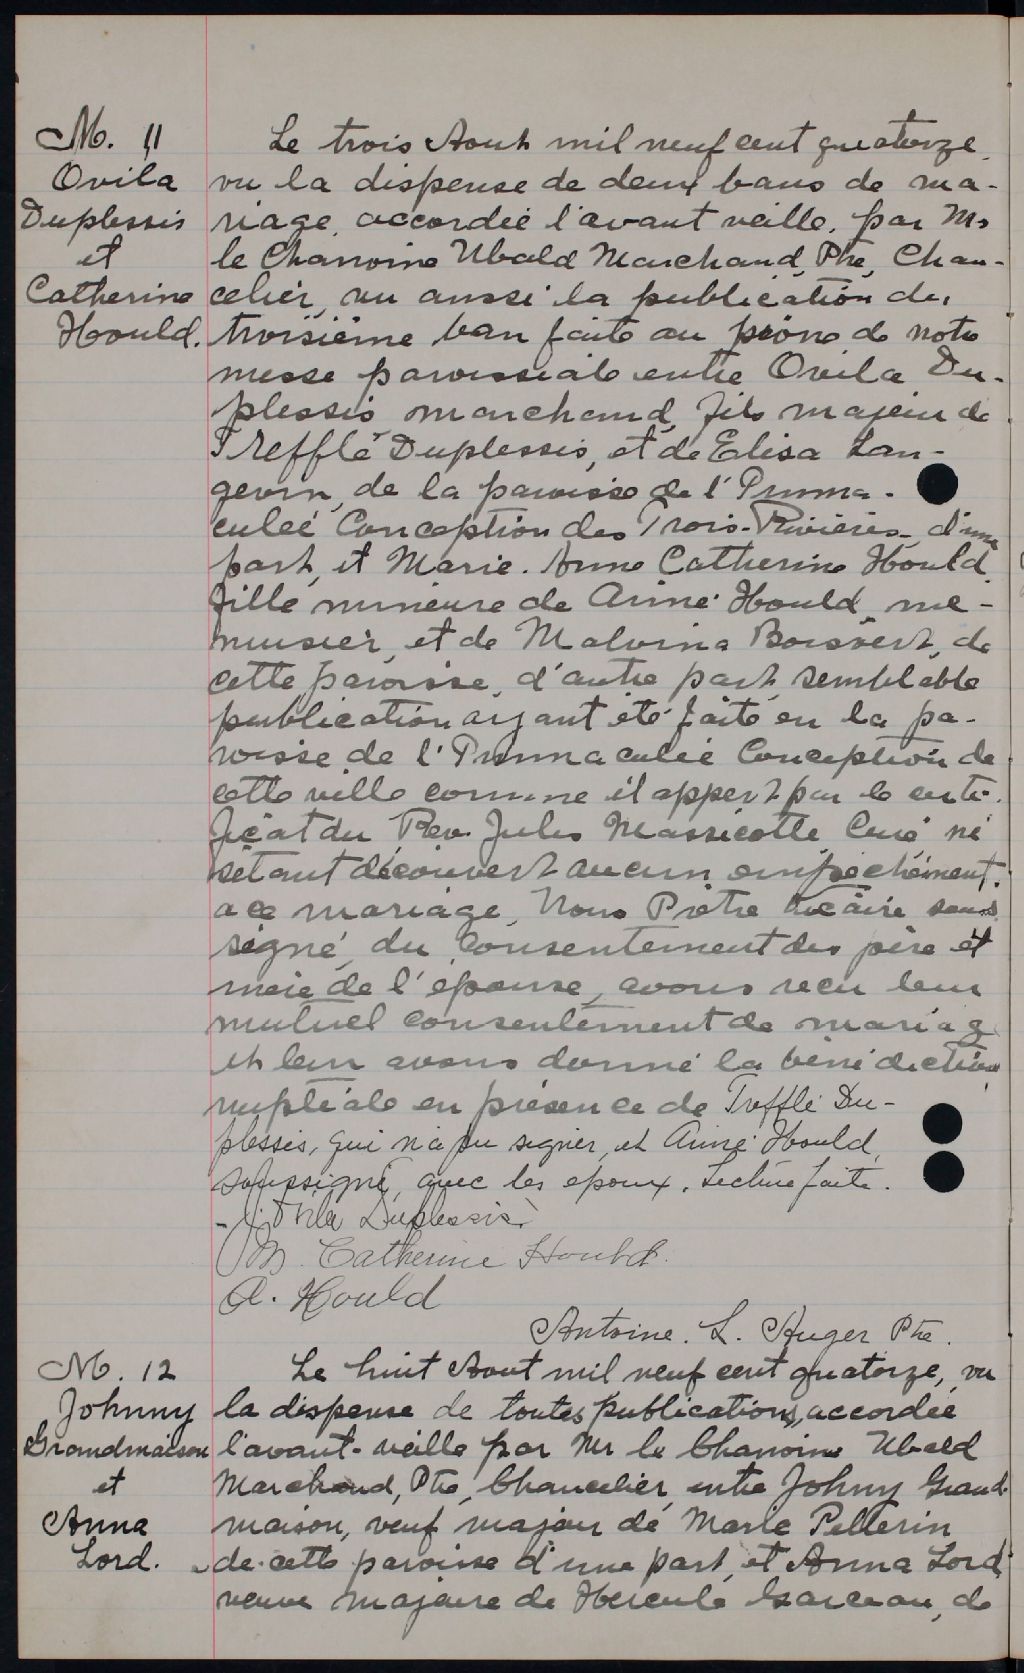 M. 11
Ovila
Duplessis
et
Catherine
Hould.
Le trois Aout mil neuf cent quatorze,
vu la dispense de deux bans de ma-
riage, accordée l'avant veille, par Mr
le Chanoine Ubald Marchand, Ptre, Chan-
celier, vu aussi la publication du
troisième ban faite au prône de notre
messe paroissiale entre Ovila Du-
plessis, marchand, fils majeur de
Trefflé Duplessis, et de Elisa Lan-
gevin, de la paroisse de l'Imma-
culée Conception des Trois-Rivières, d'une
part, et Marie-Anne Catherine Hould,
fille mineure de Aimé Hould, me-
nuisier, et de Malvina Boisvert, de
cette paroisse, d'autre part, semblable
publication ayant été faite en la pa-
roisse de l'Immaculée Conception de
cette ville comme il appert par le certi-
ficat du Rev. Jules Massicotte Curé ne
s'étant découvert aucun empêchement
a ce mariage, Nous Prêtre vicaire sous
signé, du consentement des père et
mère de l'épouse, avons recu leur
mutuel consentement de mariag
et leur avons donné la bénédiction
nuptiale en présence de Trefflé Du-
plessis, qui n'a pu signer, et Aimé Hould,
soussigné, avec les epoux. Lecture faite.
Ovila Duplessis
M. Catherine Hould.
A. Hould
Antoine. L. Auger Ptre.
M. 12
Johnny
Grandmaison
et
Anna
Lord.
Le huit Aout mil neuf cent quatorze, vu
la dispense de toutes publications, accordée
l'avant-veille par Mr le Chanoine Ubald
Marchand, Ptre, Chancelier, entre Johny Grand
maison, veuf majeur de Marie Pellerin
de cette paroisse d'une part, et Anna Lord,
veuve majeure de Hercule Garceau, de